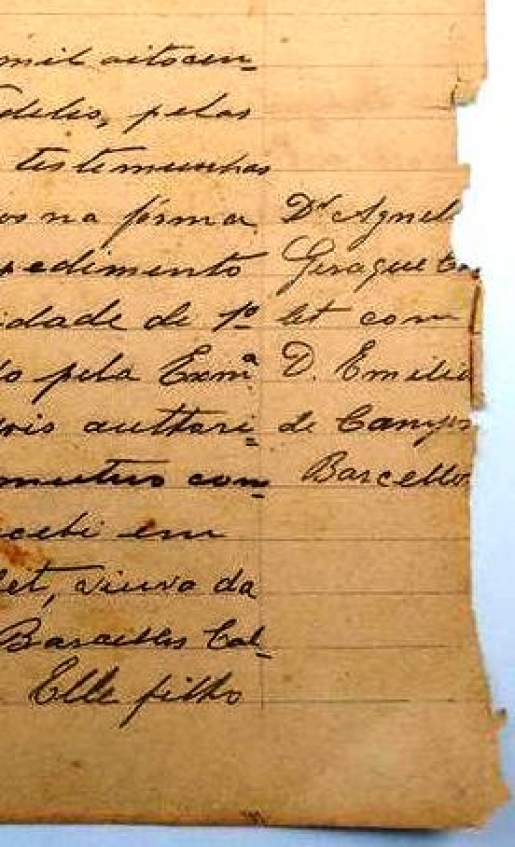 mil oitocen=
delis, pelas
testemunhas
os na fórma
pedimento
idade de 1º
o pela Exmª
ois authori=
mutuo con=
cebi em
let, viuvo da
Barcellos Col=
Elle filho
Dr Agnel
Geraque Co
let com
D. Emilia
de Campos
Barcellos